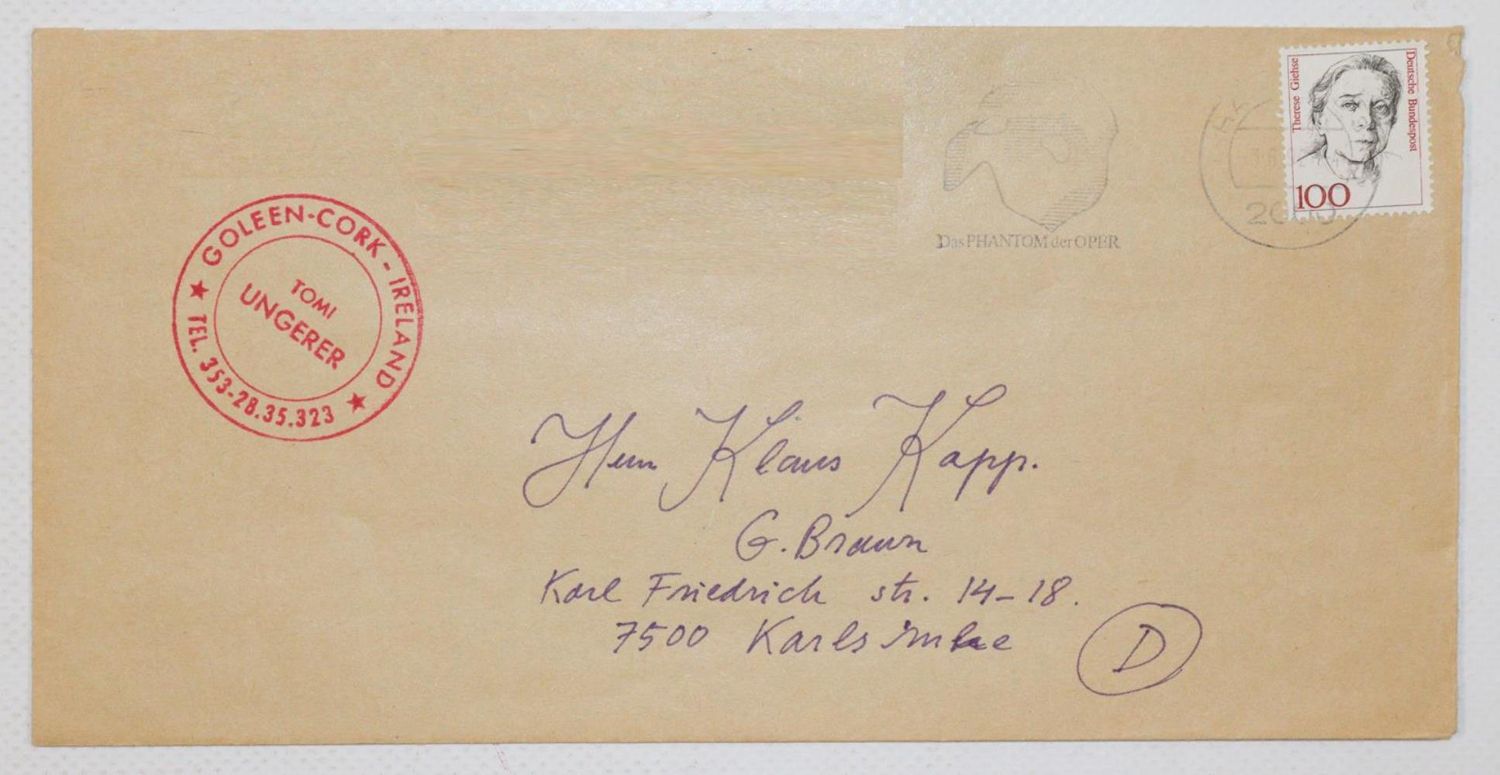 Therese Giehse
Deutsche Bundespost
100
Das PHANTOM der OPER
GOLEEN-CORK-IRELAND
TOMI
UNGERER
★ TEL. 353-28.35.323 ★
Herrn Klaus Kapp.
G. Braun
Karl Friedrich str. 14-18.
7500 Karlsruhe
D